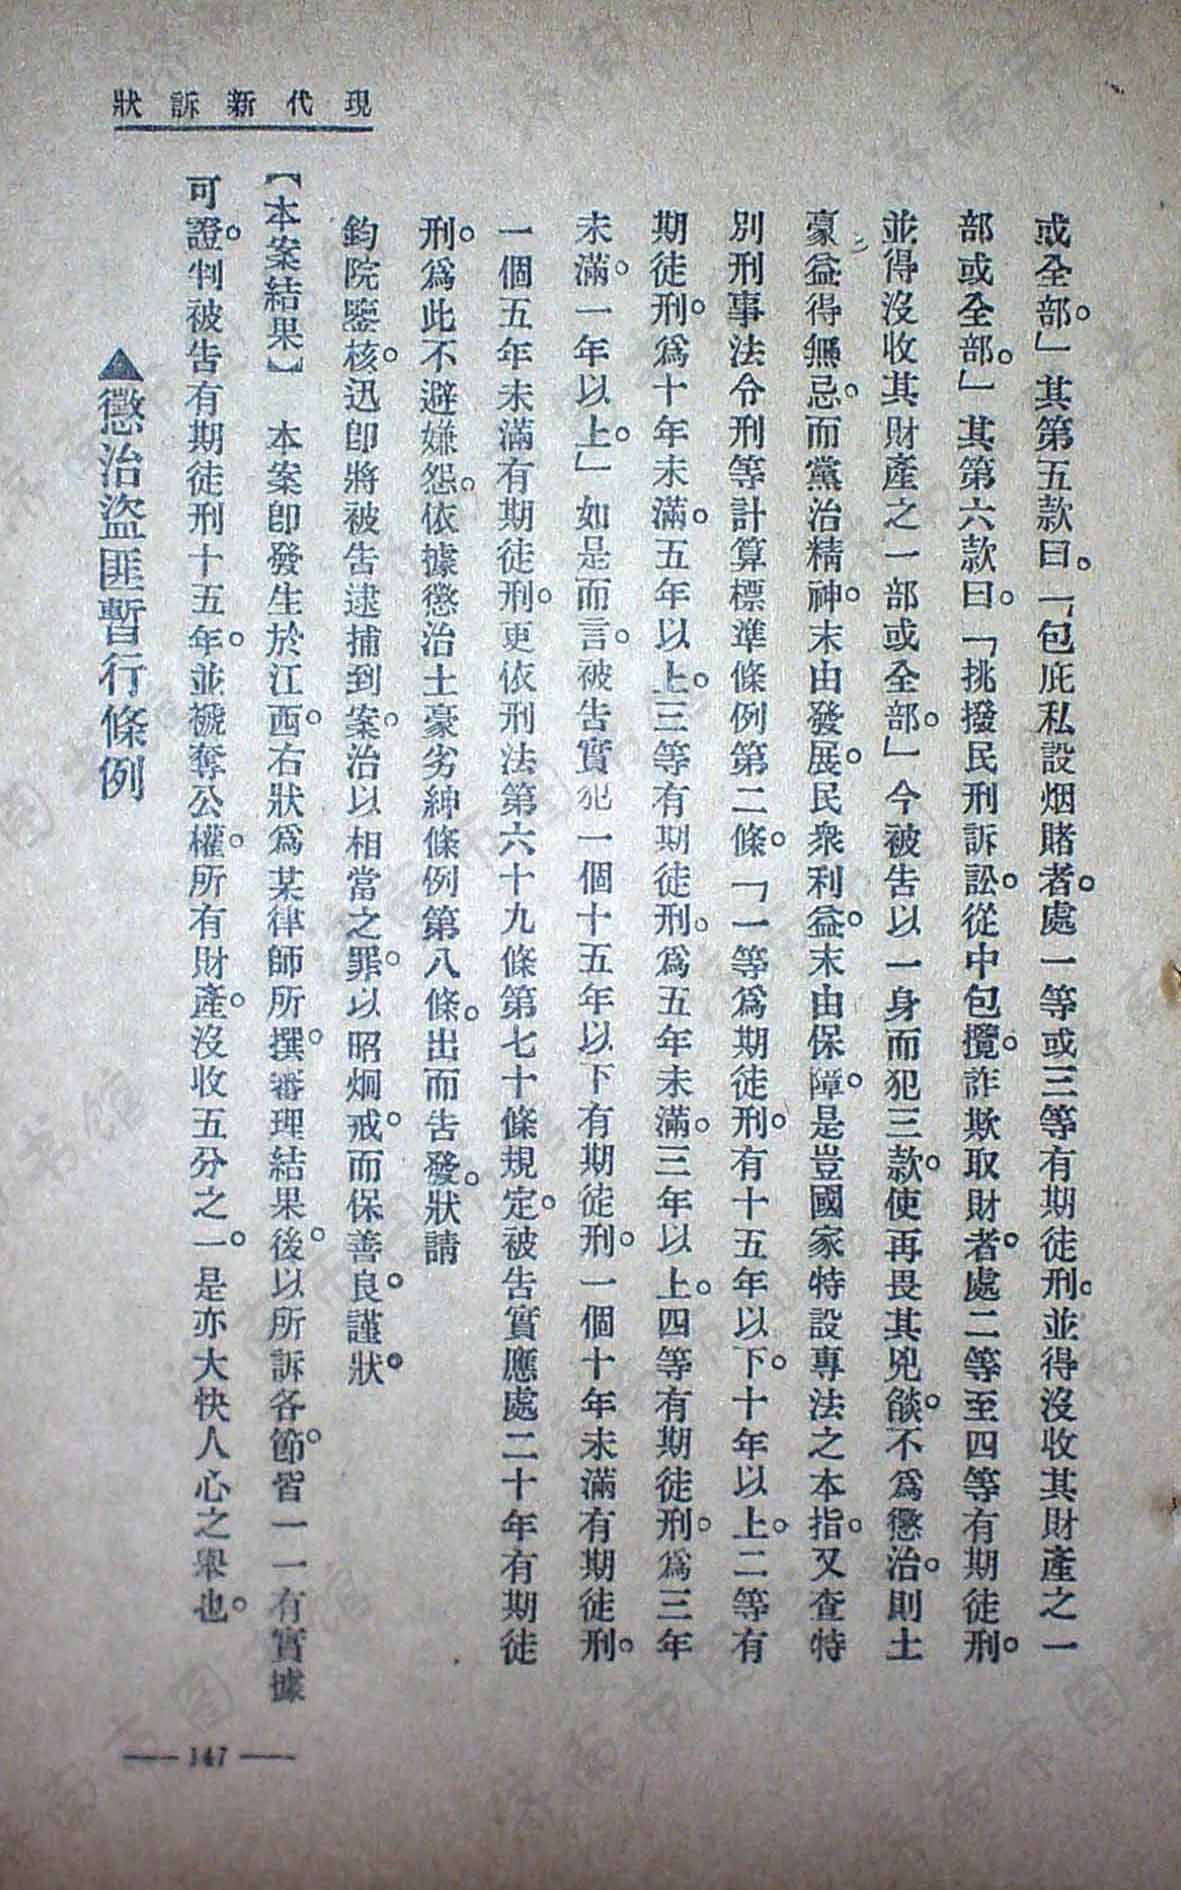 現代新訴狀
或全部。」其第五款曰。「包庇私設烟賭者。處一等或三等有期徒刑。並得沒收其財產之一
部或全部。」其第六款曰。「挑撥民刑訴訟。從中包攬。詐欺取財者。處二等至四等有期徒刑。
並得沒收其財產之一部或全部。」今被告以一身而犯三款。使再畏其兇燄。不爲懲治。則土
豪益得無忌。而黨治精神。末由發展。民衆利益。末由保障。是豈國家特設專法之本指。又查特
別刑事法令刑等計算標準條例第二條。「一等爲期徒刑。有十五年以下。十年以上。二等有
期徒刑。爲十年未滿。五年以上。三等有期徒刑。爲五年未滿。三年以上。四等有期徒刑。爲三年
未滿。一年以上。」如是而言。被告實犯一個十五年以下有期徒刑。一個十年未滿有期徒刑。
一個五年未滿有期徒刑。更依刑法第六十九條第七十條規定。被告實應處二十年有期徒
刑。爲此不避嫌怨。依據懲治土豪劣紳條例第八條。出而告發。狀請
鈞院鑒核。迅卽將被告逮捕到案。治以相當之罪。以昭烱戒。而保善良。謹狀。
【本案結果】　本案卽發生於江西。右狀爲某律師所撰。審理結果後。以所訴各節。皆一一有實據
可證。判被告有期徒刑十五年。並褫奪公權。所有財產。沒收五分之一。是亦大快人心之舉也。
▲懲治盜匪暫行條例
— 147 —